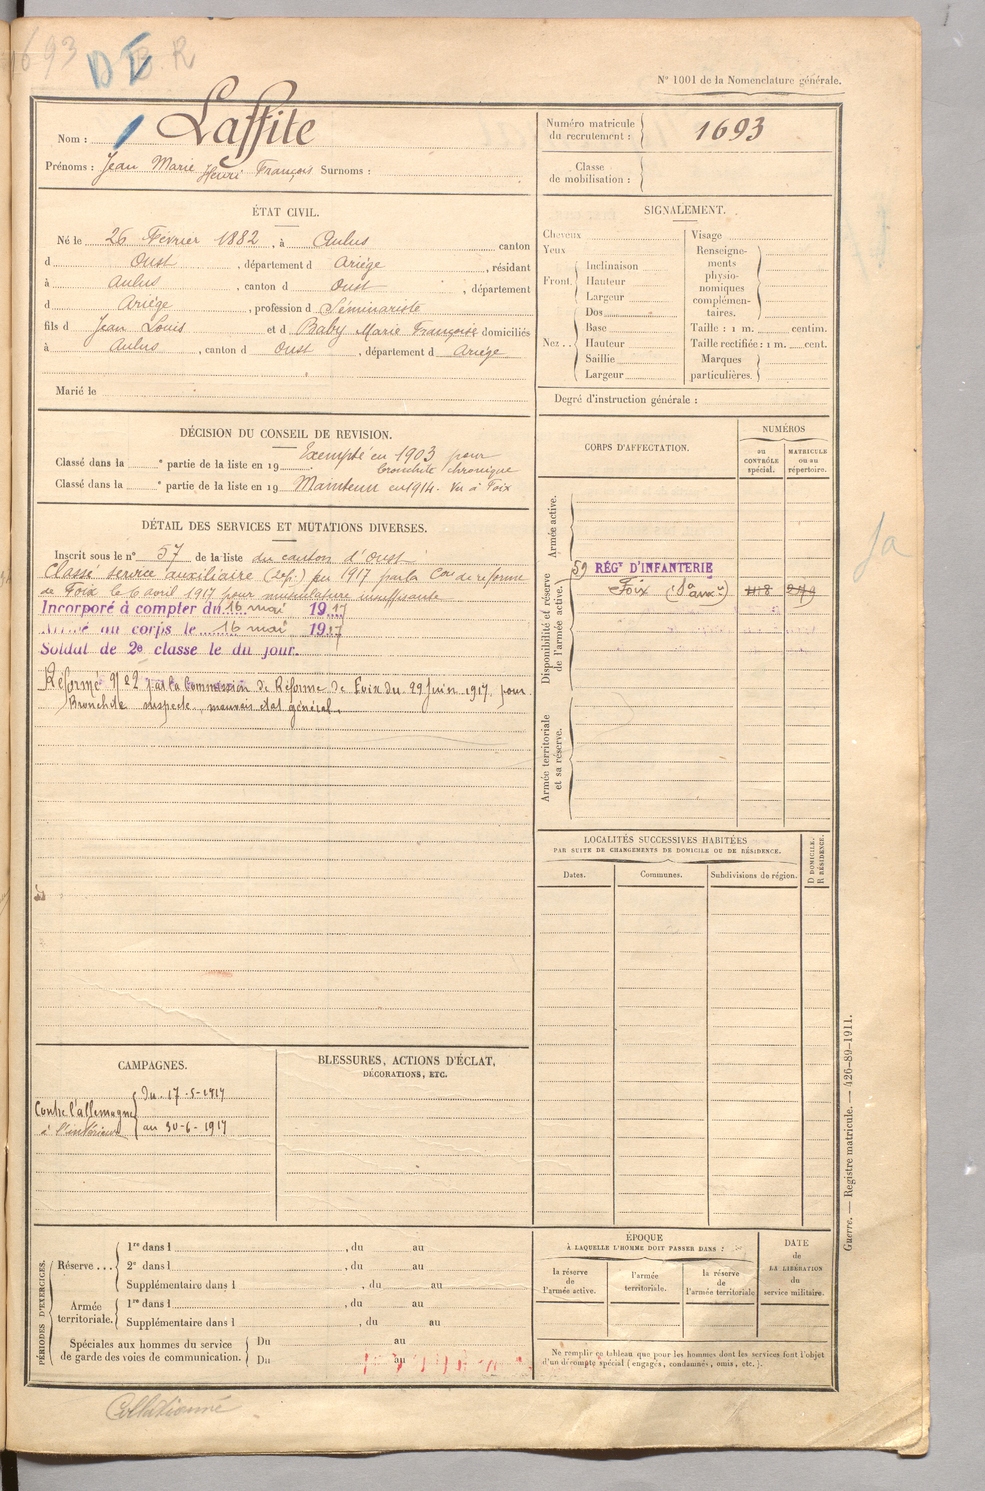 1693 DE R
N° 1001 de la Nomenclature générale.
Nom : Laffite
Prénoms : Jean Marie Henri François Surnoms :
Numéro matricule du recrutement : 1693
Classe de mobilisation :
ÉTAT CIVIL.
Né le 26 Février 1882, à Aulus canton
d Oust, département d Ariége, résidant
à Aulus, canton d Oust, département
d Ariége, profession d Séminariste
fils d Jean Louis et d Baby Marie Françoise domiciliés
à Aulus, canton d Oust, département d Ariége
Marié le
SIGNALEMENT.
Cheveux
Yeux
Front. Inclinaison
Hauteur
Largeur
Nez.. Dos
Base
Hauteur
Saillie
Largeur
Visage
Renseignements physionomiques complémentaires.
Taille : 1 m. centim.
Taille rectifiée : 1 m. cent.
Marques particulières.
Degré d'instruction générale :
DÉCISION DU CONSEIL DE REVISION.
Classé dans la e partie de la liste en 19 Exempté en 1903 pour
bronchite chronique
Classé dans la e partie de la liste en 19 Maintenu en 1914. Vu à Foix
DÉTAIL DES SERVICES ET MUTATIONS DIVERSES.
Inscrit sous le n° 57 de la liste du canton d'Oust
Classé service auxiliaire en 1917 par la Con de réforme
de Foix le 6 avril 1917 pour musculature insuffisante
Incorporé à compter du 16 mai 1917
Arrivé au corps le 16 mai 1917
Soldat de 2e classe le du jour.
Réformé N°2 par la Commission de Réforme de Foix du 29 Juin 1917 pour
Bronchite suspecte, mauvais état général.
CORPS D'AFFECTATION.
NUMÉROS
au CONTRÔLE spécial.
MATRICULE ou au répertoire.
Armée active.
Disponibilité et réserve de l'armée active.
59 RÉGT D'INFANTERIE
Foix
Armée territoriale et sa réserve.
LOCALITÉS SUCCESSIVES HABITÉES
PAR SUITE DE CHANGEMENTS DE DOMICILE OU DE RÉSIDENCE.
Dates.
Communes.
Subdivisions de région.
D DOMICILE.
R RÉSIDENCE.
CAMPAGNES.
Contre l'allemagne
à l'intérieur
Du 17-5-1917
au 30-6-1917
BLESSURES, ACTIONS D'ÉCLAT,
DÉCORATIONS, ETC.
PÉRIODES D'EXERCICES.
Réserve ... 1re dans l , du au
2e dans l , du au
Supplémentaire dans l , du au
Armée territoriale. 1re dans l , du au
Supplémentaire dans l , du au
Spéciales aux hommes du service
de garde des voies de communication.
Du au
Du au
ÉPOQUE
À LAQUELLE L'HOMME DOIT PASSER DANS :
la réserve de l'armée active.
l'armée territoriale.
la réserve de l'armée territoriale
DATE de LA LIBÉRATION du service militaire.
Ne remplir ce tableau que pour les hommes dont les services font l'objet
d'un décompte spécial (engagés, condamnés, omis, etc.).
Guerre. — Registre matricule. — 426-89-1911.
Collationné